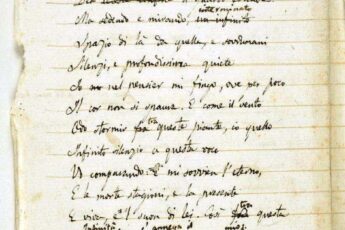 Ma sedendo e mirando, un infinito
Spazio di là da quella, e sovrumani
Silenzi, e profondissima quiete
Io nel pensier mi fingo, ove per poco
Il cor non si spaura. E come il vento
Odo stormir tra queste piante, io quello
Infinito silenzio a questa voce
Vo comparando: E mi sovvien l'eterno,
E le morte stagioni, e la presente
E viva, e 'l suon di lei. Così tra questa